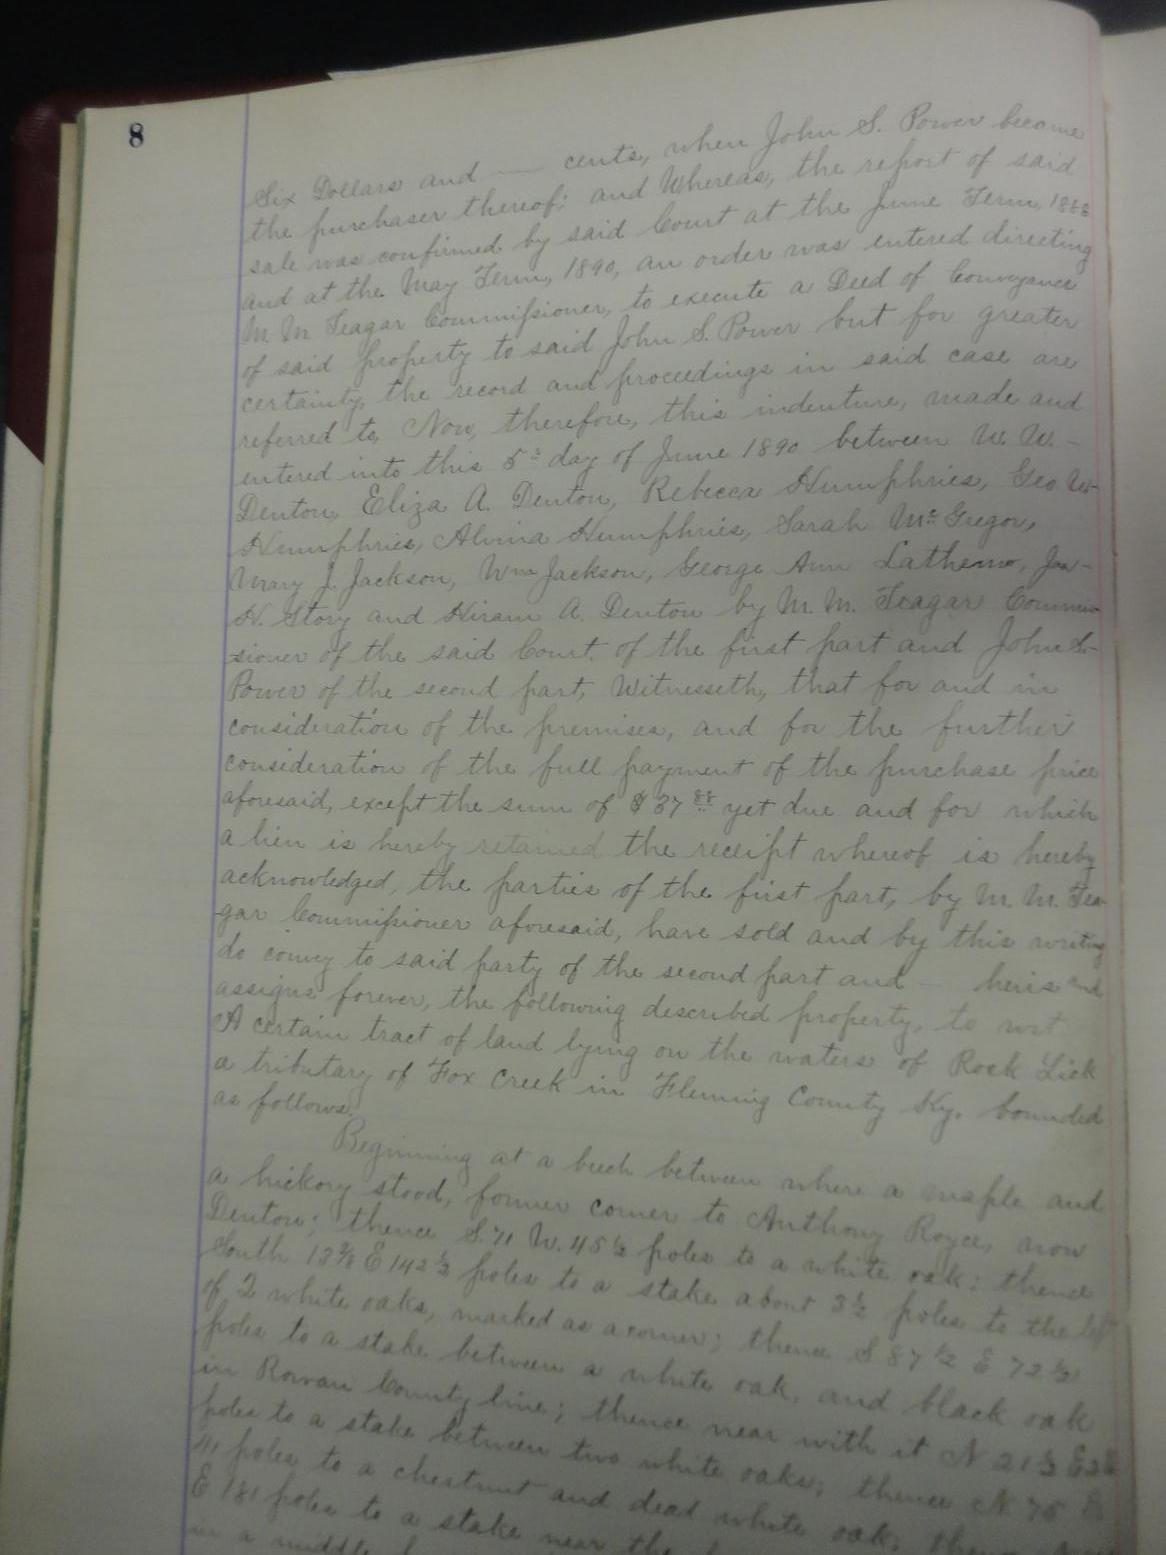 8
Six Dollars and — cents, when John S. Power became
the purchaser thereof; and Whereas, the report of said
sale was confirmed by said Court at the June Term, 1888
and at the May Term, 1890, an order was entered directing
M. M. Teagar Commissioner, to execute a Deed of Conveyance
of said property to said John S. Power but for greater
certainty, the record and proceedings in said case are
referred to, Now, therefore, this indenture, made and
entered into this 5th day of June 1890 between W. W. -
Denton, Eliza A. Denton, Rebecca Humphries, Geo W-
Humphries, Alvina Humphries, Sarah McGregor,
Mary J. Jackson, Wm Jackson, George Ann Lathemo, Jas -
H. Story and Hiram A. Denton by M. M. Teagar Commis-
sioner of the said Court. of the first part and John S-
Power of the second part, Witnesseth, that for and in
consideration of the premises, and for the further
consideration of the full payment of the purchase price
aforesaid, except the sum of $37 88 yet due and for which
a lien is hereby retained the receipt whereof is hereby
acknowledged, the parties of the first part, by M. M. Tea-
gar Commissioner aforesaid, have sold and by this writing
do convey to said party of the second part and — heirs and
assigns forever, the following described property, to wit
A certain tract of land lying on the waters of Rock Lick
a tributary of Fox Creek in Fleming County Ky. bounded
as follows.
Beginning at a beech between where a maple and
a hickory stood, former corner to Anthony Royce, now
Denton; thence S. 71 W. 45 1/2 poles to a white oak; thence
South 13 3/4 E 142 1/2 poles to a stake about 3 1/2 poles to the left
of 2 white oaks, marked as a corner; thence S 87 1/2 E 72 1/2
poles to a stake between a white oak, and black oak
in Rowan County line; thence near with it N 21 1/2 E
poles to a stake between two white oaks; thence N 75 E
poles to a chestnut and dead white oak; thence
E 181 poles to a stake near the
in a middle